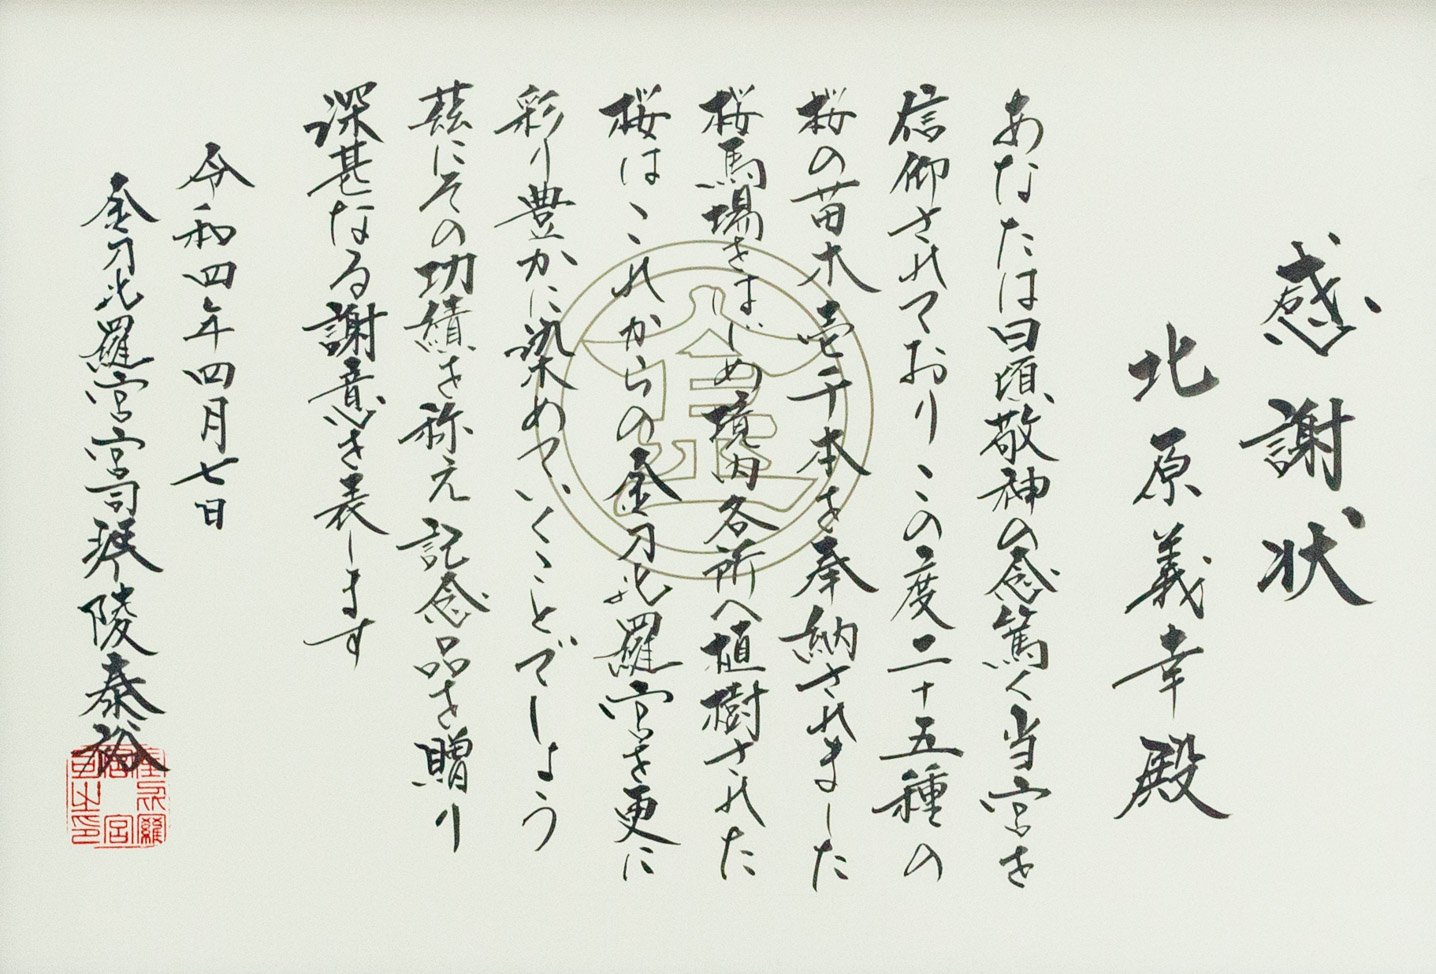 感謝状
北原義幸殿
あなたは日頃敬神の念篤く当宮を
信仰されておりこの度二十五種の
桜の苗木壱千本を奉納されました
桜馬場をはじめ境内各所へ植樹された
桜はこれからの金刀比羅宮を更に
彩り豊かに染めていくことでしょう
茲にその功績を称え記念品を贈り
深甚なる謝意を表します
令和四年四月七日
金刀比羅宮宮司琴陵泰裕
金